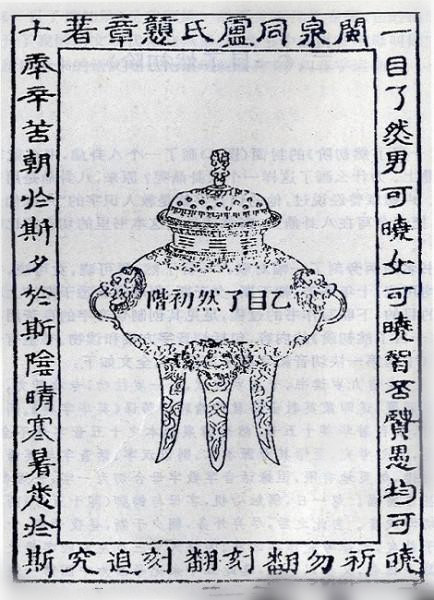 閩泉同盧氏戇章著
一目了然男可曉女可曉智否賢愚均可曉
乙目了然初階
十年辛苦朝於斯夕於斯陰晴寒暑悉於斯
祈勿翻刻翻刻追究